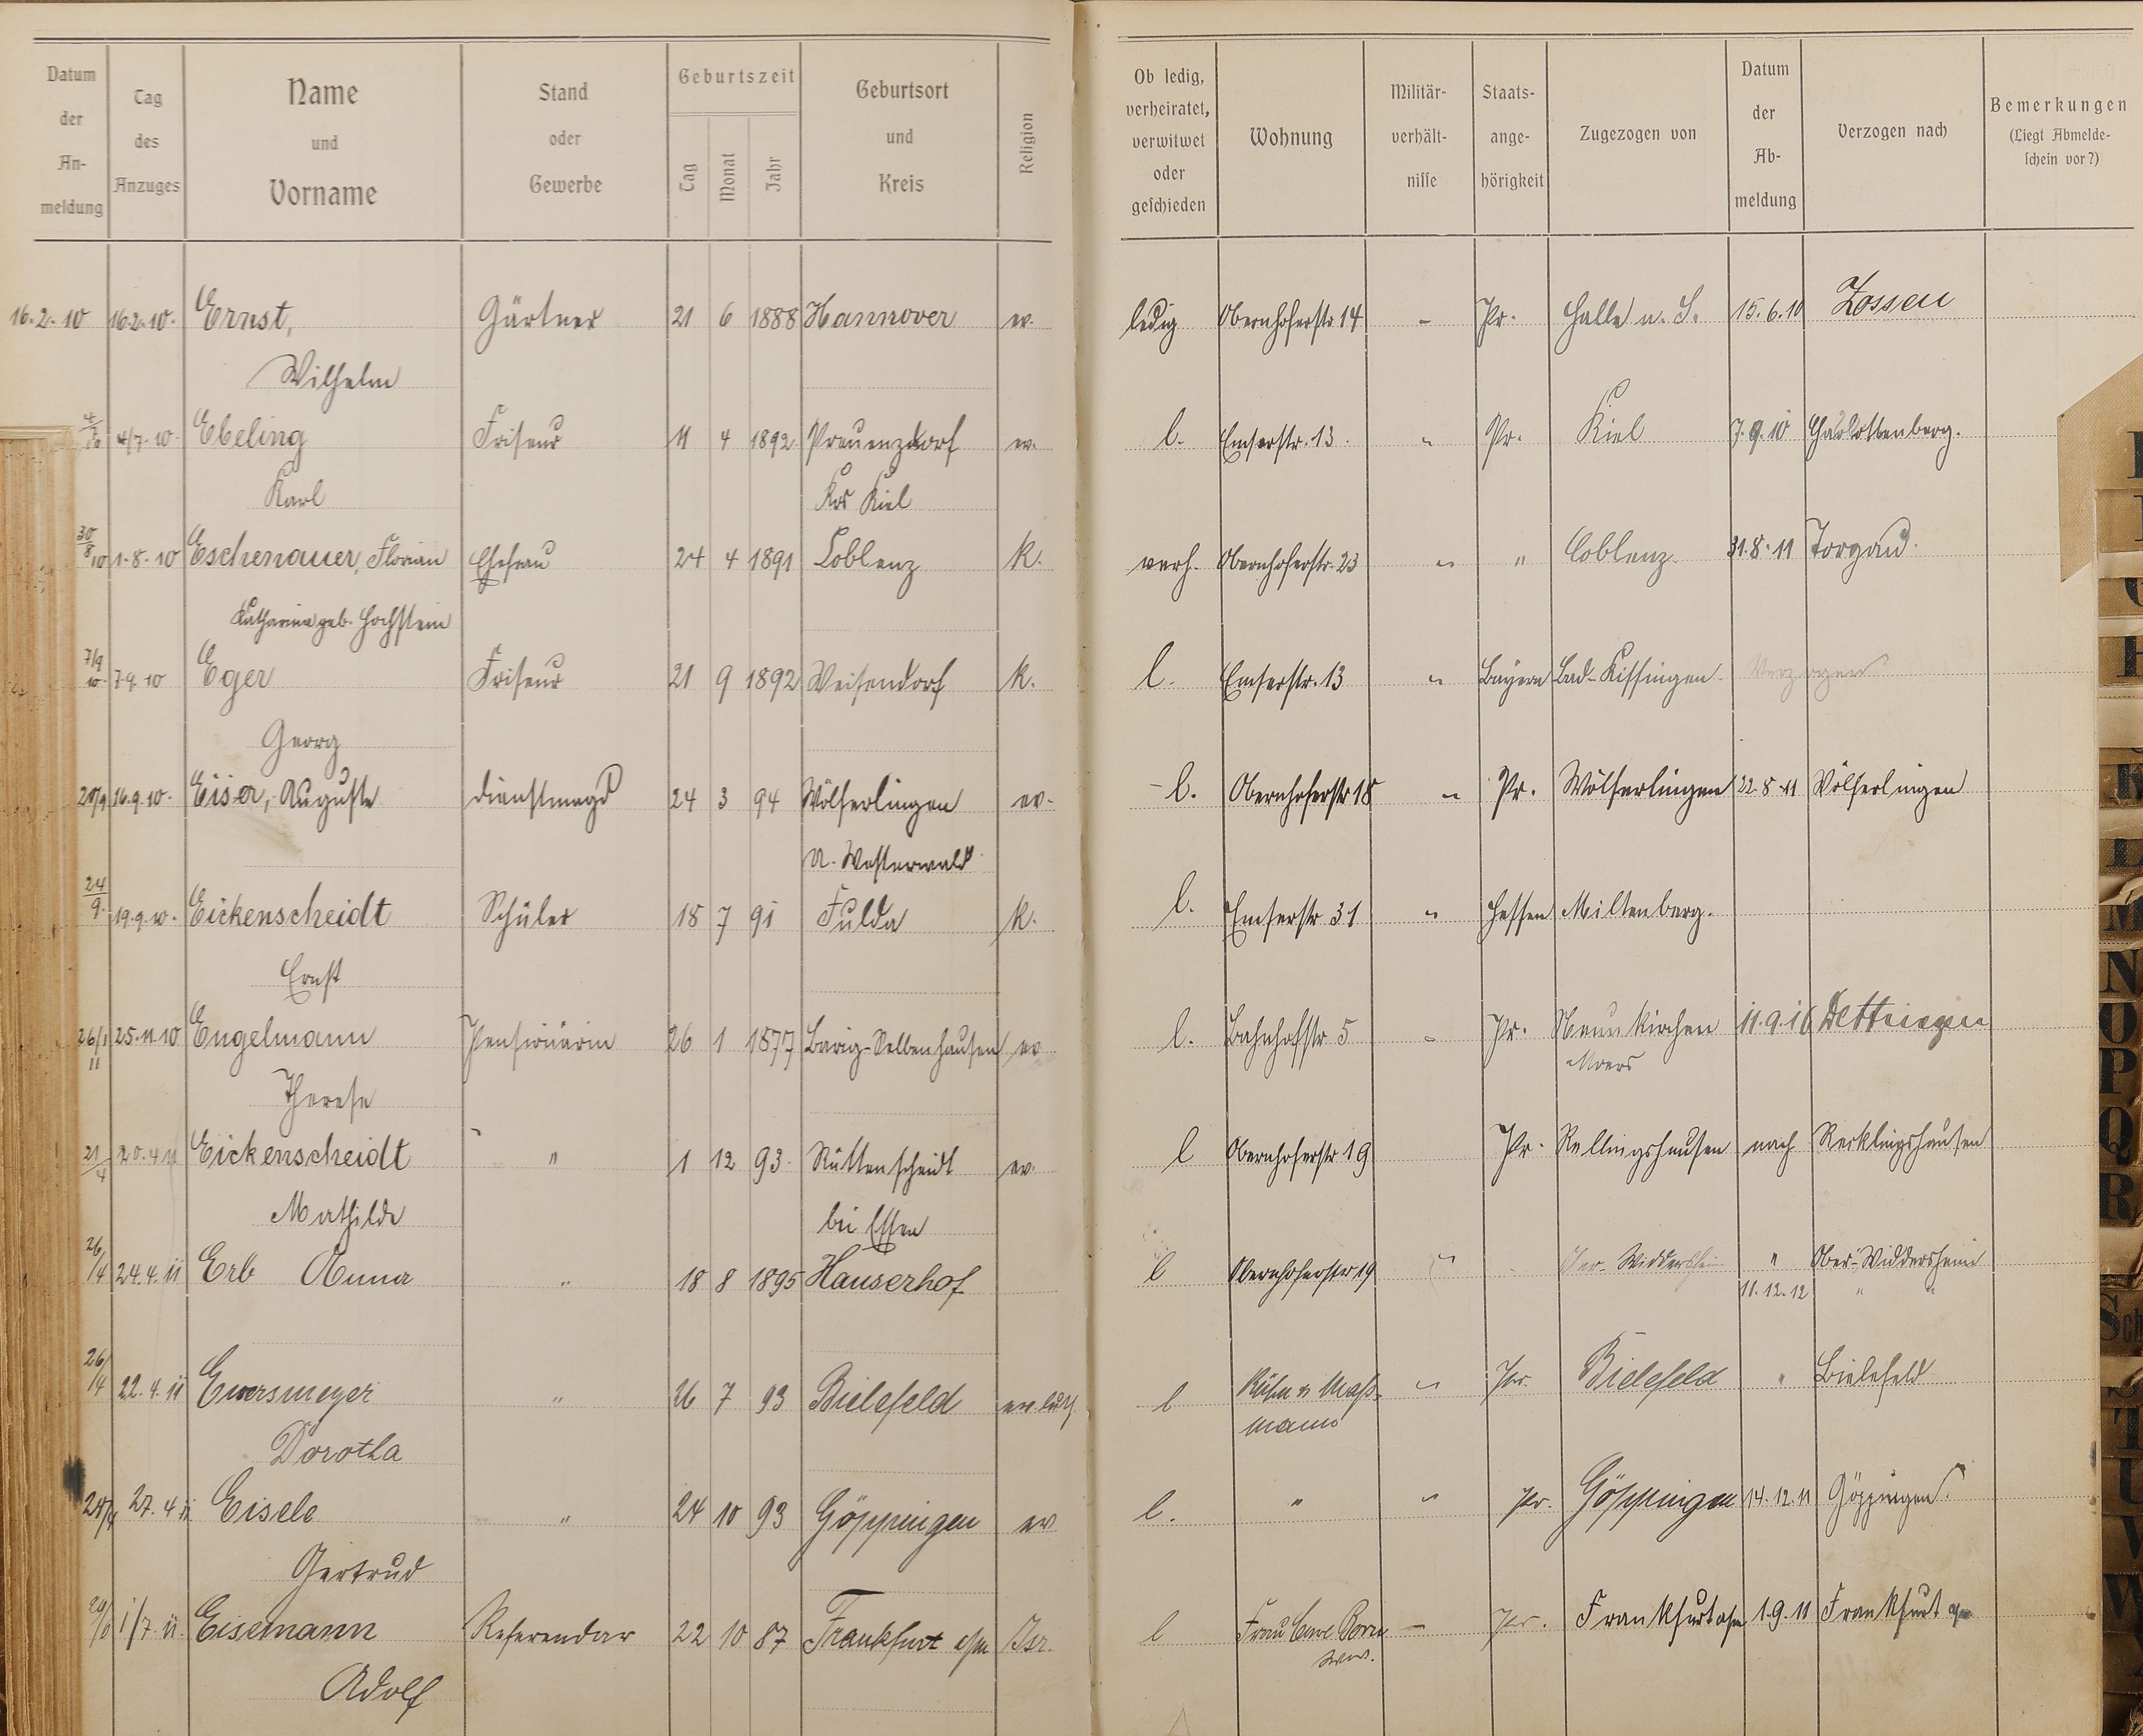 Datum der An- meldung
Tag des Anzuges
Name und Vorname
Stand oder Gewerbe
Geburtszeit
Tag Monat Jahr
Geburtsort und Kreis
Religion
Ob ledig, verheiratet, verwitwet oder geschieden
Wohnung
Militär- verhält- nisse
Staats- ange- hörigkeit
Zugezogen von
Datum der Ab- meldung
Verzogen nach
Bemerkungen (Liegt Abmelde- schein vor?)
16.2.10 16.2.10. Ernst, Gärtner 21 6 1888 Hannover ev. ledig Obernhoferstr. 14 - Pr. Halle a. S. 15.6.10 Zossen
Wilhelm
4/7 10 4/7.10 Ebeling Friseur 11 4 1892 ev. l. Emserstr. 13. " Pr. Kiel 7.9.10
Karl Krs Kiel
30/8 10 1.8.10 Eschenauer, Florian Ehefrau 24 4 1891 Coblenz K. verh. Obernhoferstr. 23 " " Coblenz 31.8.11 Torgau.
Katharina geb. Hochstein
7/9 10. 7.9.10 Eger Friseur 21 9 1892 Weisendorf K. l. Emserstr. 13 " Bayern Bad-Kissingen Verzogen
Georg
20/9 16.9.10. Eiser, Auguste Dienstmagd 24 3 94 Wölferlingen ev. l. Obernhoferstr 18 " Pr. Wölferlingen 22.8.11 Wölferlingen
a. Westerwald
24/9. 19.9.10. Eickenscheidt Schüler 18 7 91 Fulda K. l. Emserstr 31 " Hessen Miltenberg.
Ernst
26/1 11 25.11.10 Engelmann Pensionärin 26 1 1877 Barig-Selbenhausen ev l. Bahnhofstr 5 " Pr. Neunkirchen 11.9.16 Dettingen
Therese Moers
21/4 20.4.11 Eickenscheidt " 1 12 93. Rüttenscheidt ev. l Obernhoferstr 19 Pr. Rellingshausen nach Recklingshausen
Mathilde bei Essen
26/4 24.4.11 Erb Anna " 18 8 1895 Hauserhof l Obernhoferstr 19 " Ober-Widdersheim " Ober-Widdersheim
11.12.12 " "
26/4 22.4.11 Ewersmeyer " 26 7 93 Bielefeld ev. luth. l " Pr. Bielefeld " Bielefeld
Dorothea
27.4.11 Eisele " 24 10 93 Göppingen ev l. " " Pr. Göppingen 14.12.11 Göppingen.
Gertrud
1/7.11. Eisemann Referendar 22 10 87 Frankfurt a/m Isr. l Frau - Pr. Frankfurt a/m 1.9.11 Frankfurt a/m
Adolf